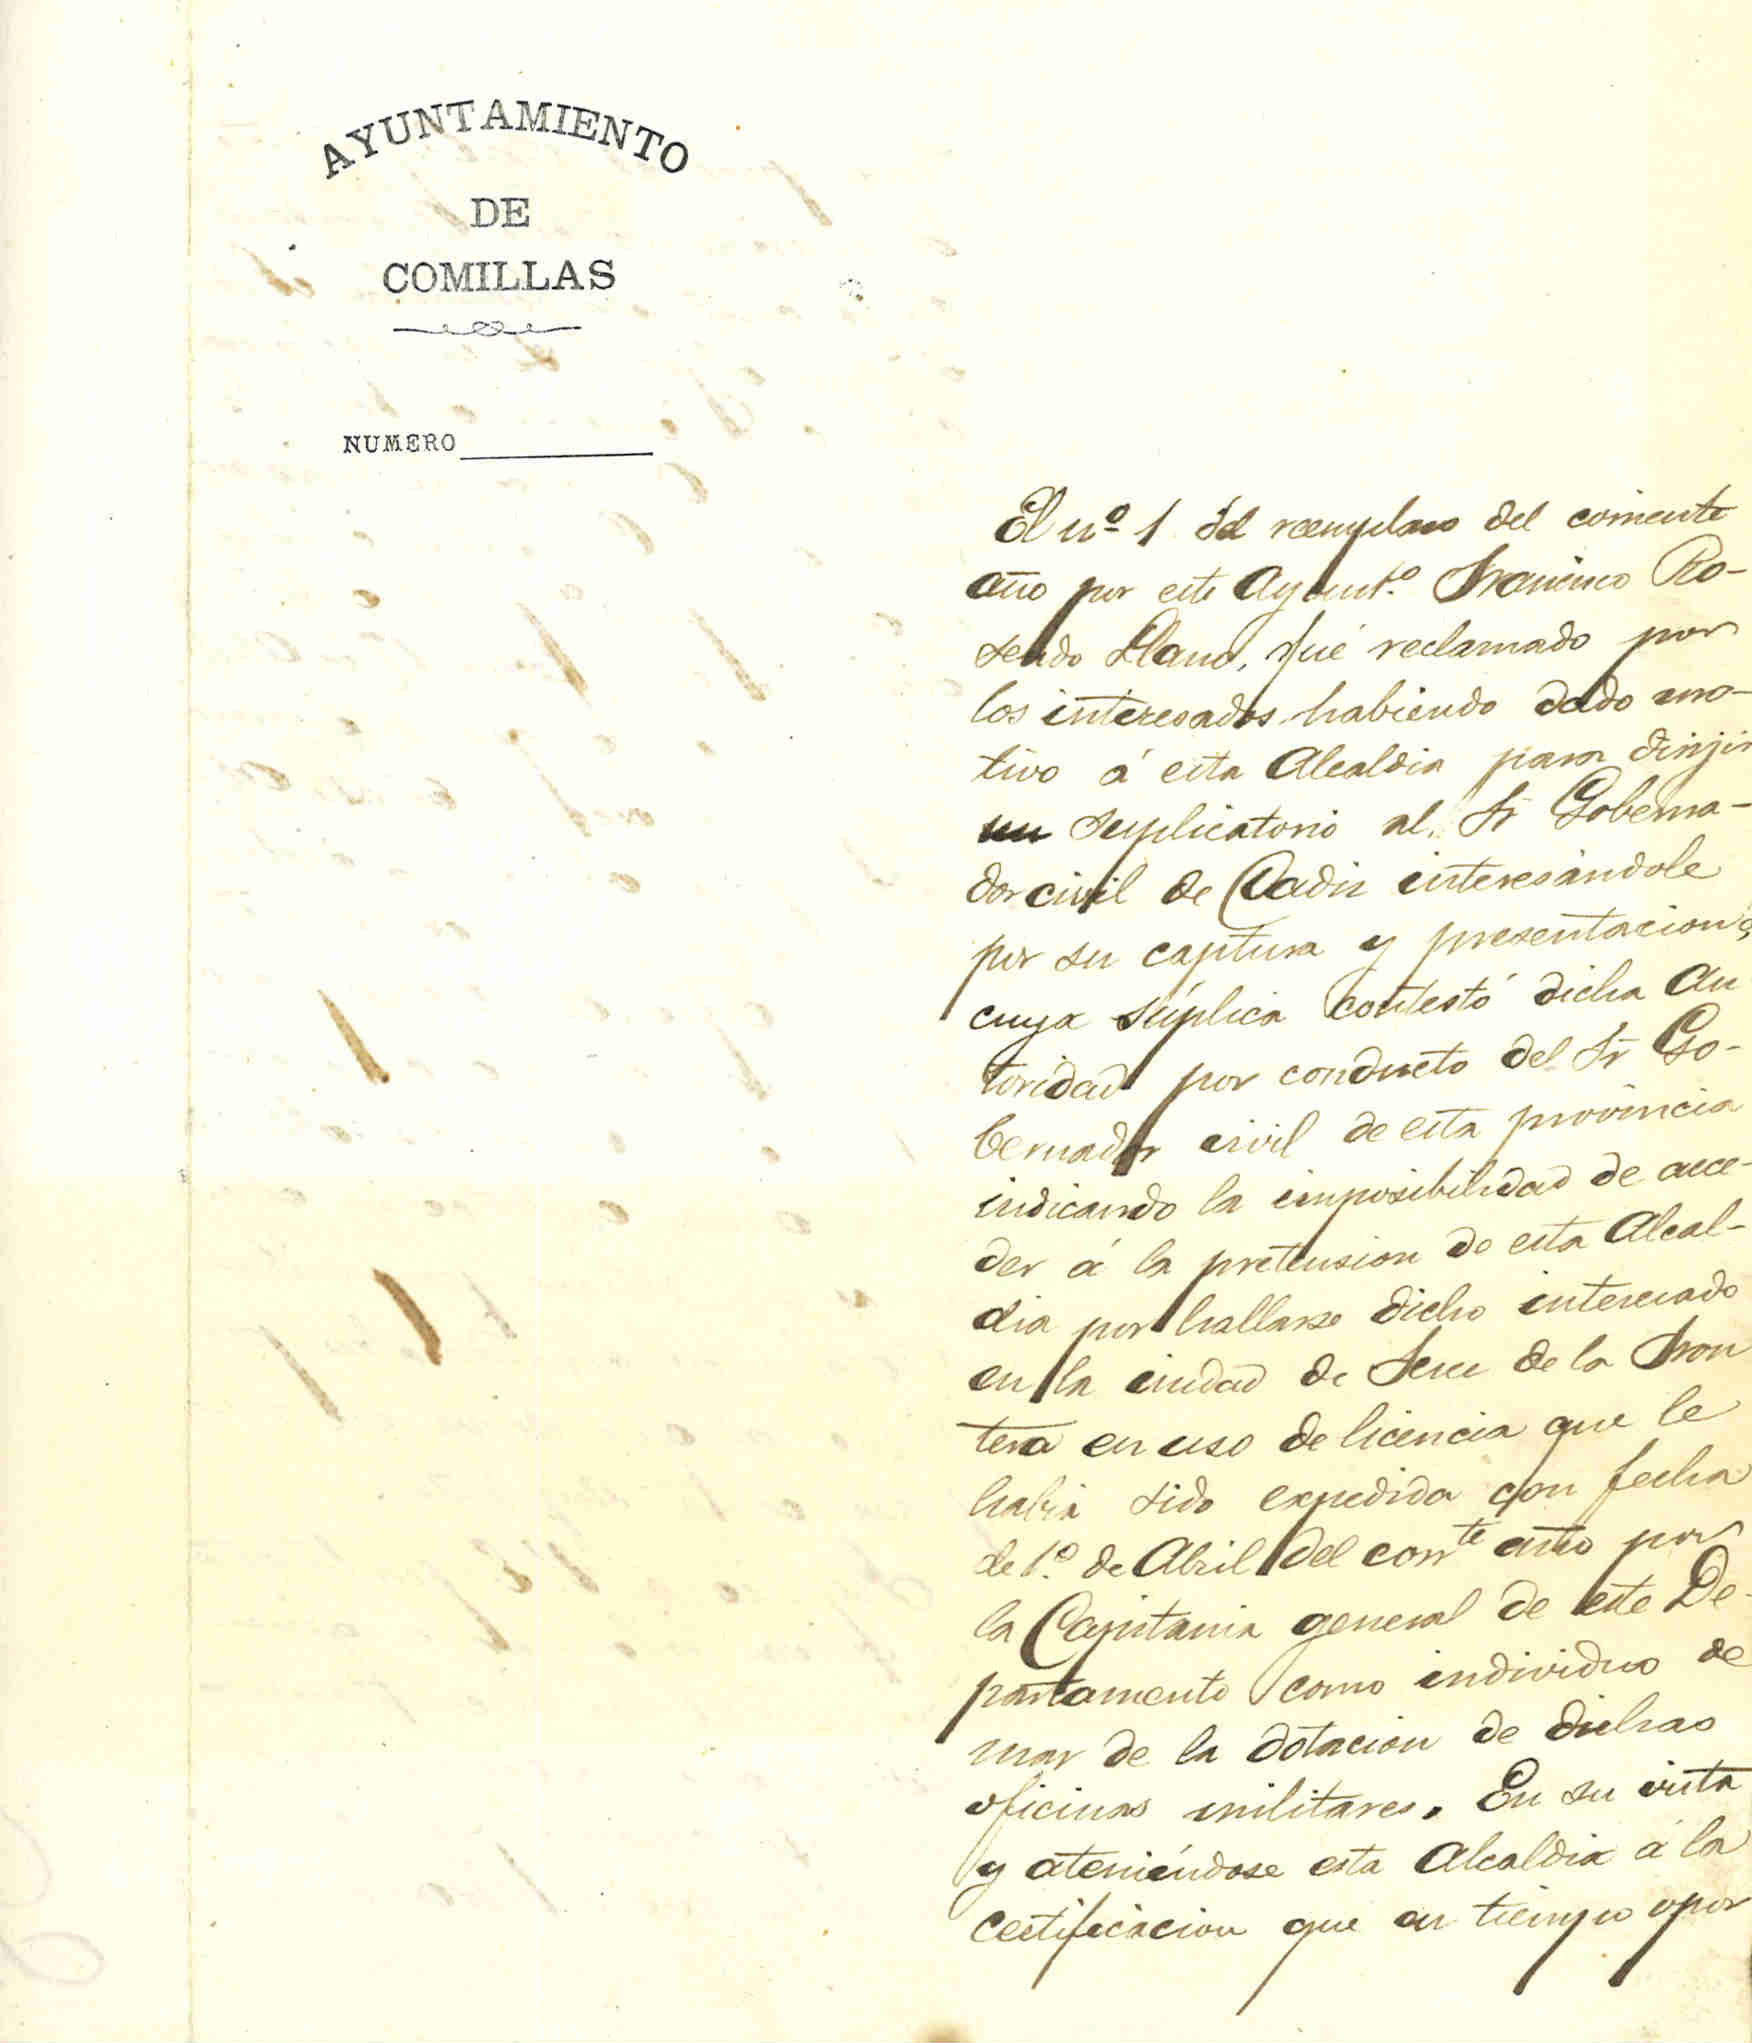 AYUNTAMIENTO
DE
COMILLAS
NUMERO
El nº 1 del reemplazo del corriente
año por este Ayuntº Francisco Ro-
sendo Llano, fué reclamado por
los interesados habiendo dado mo-
tivo á esta Alcaldia para dirijir
un suplicatorio al Sr Goberna-
dor civil de Cadiz interesándole
por su captura y presentacion, á
cuya súplica contestó dicha Au
toridad por conducto del Sr Go-
bernador civil de esta provincia
indicando la imposibilidad de acce-
der á la pretension de esta Alcal-
dia por hallarse dicho interesado
en la ciudad de Jerez de la Fron
tera en uso de licencia que le
habia sido expedida con fecha
de 1º de Abril del corrte año por
la Capitania general de este De-
partamento como individuo de
mar de la dotacion de dichas
oficinas militares. En su vista
y ateniéndose esta Alcaldia á la
certificacion que en tiempo opor